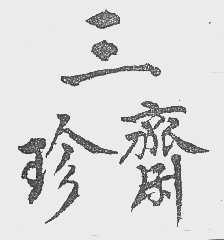 三
珍齋